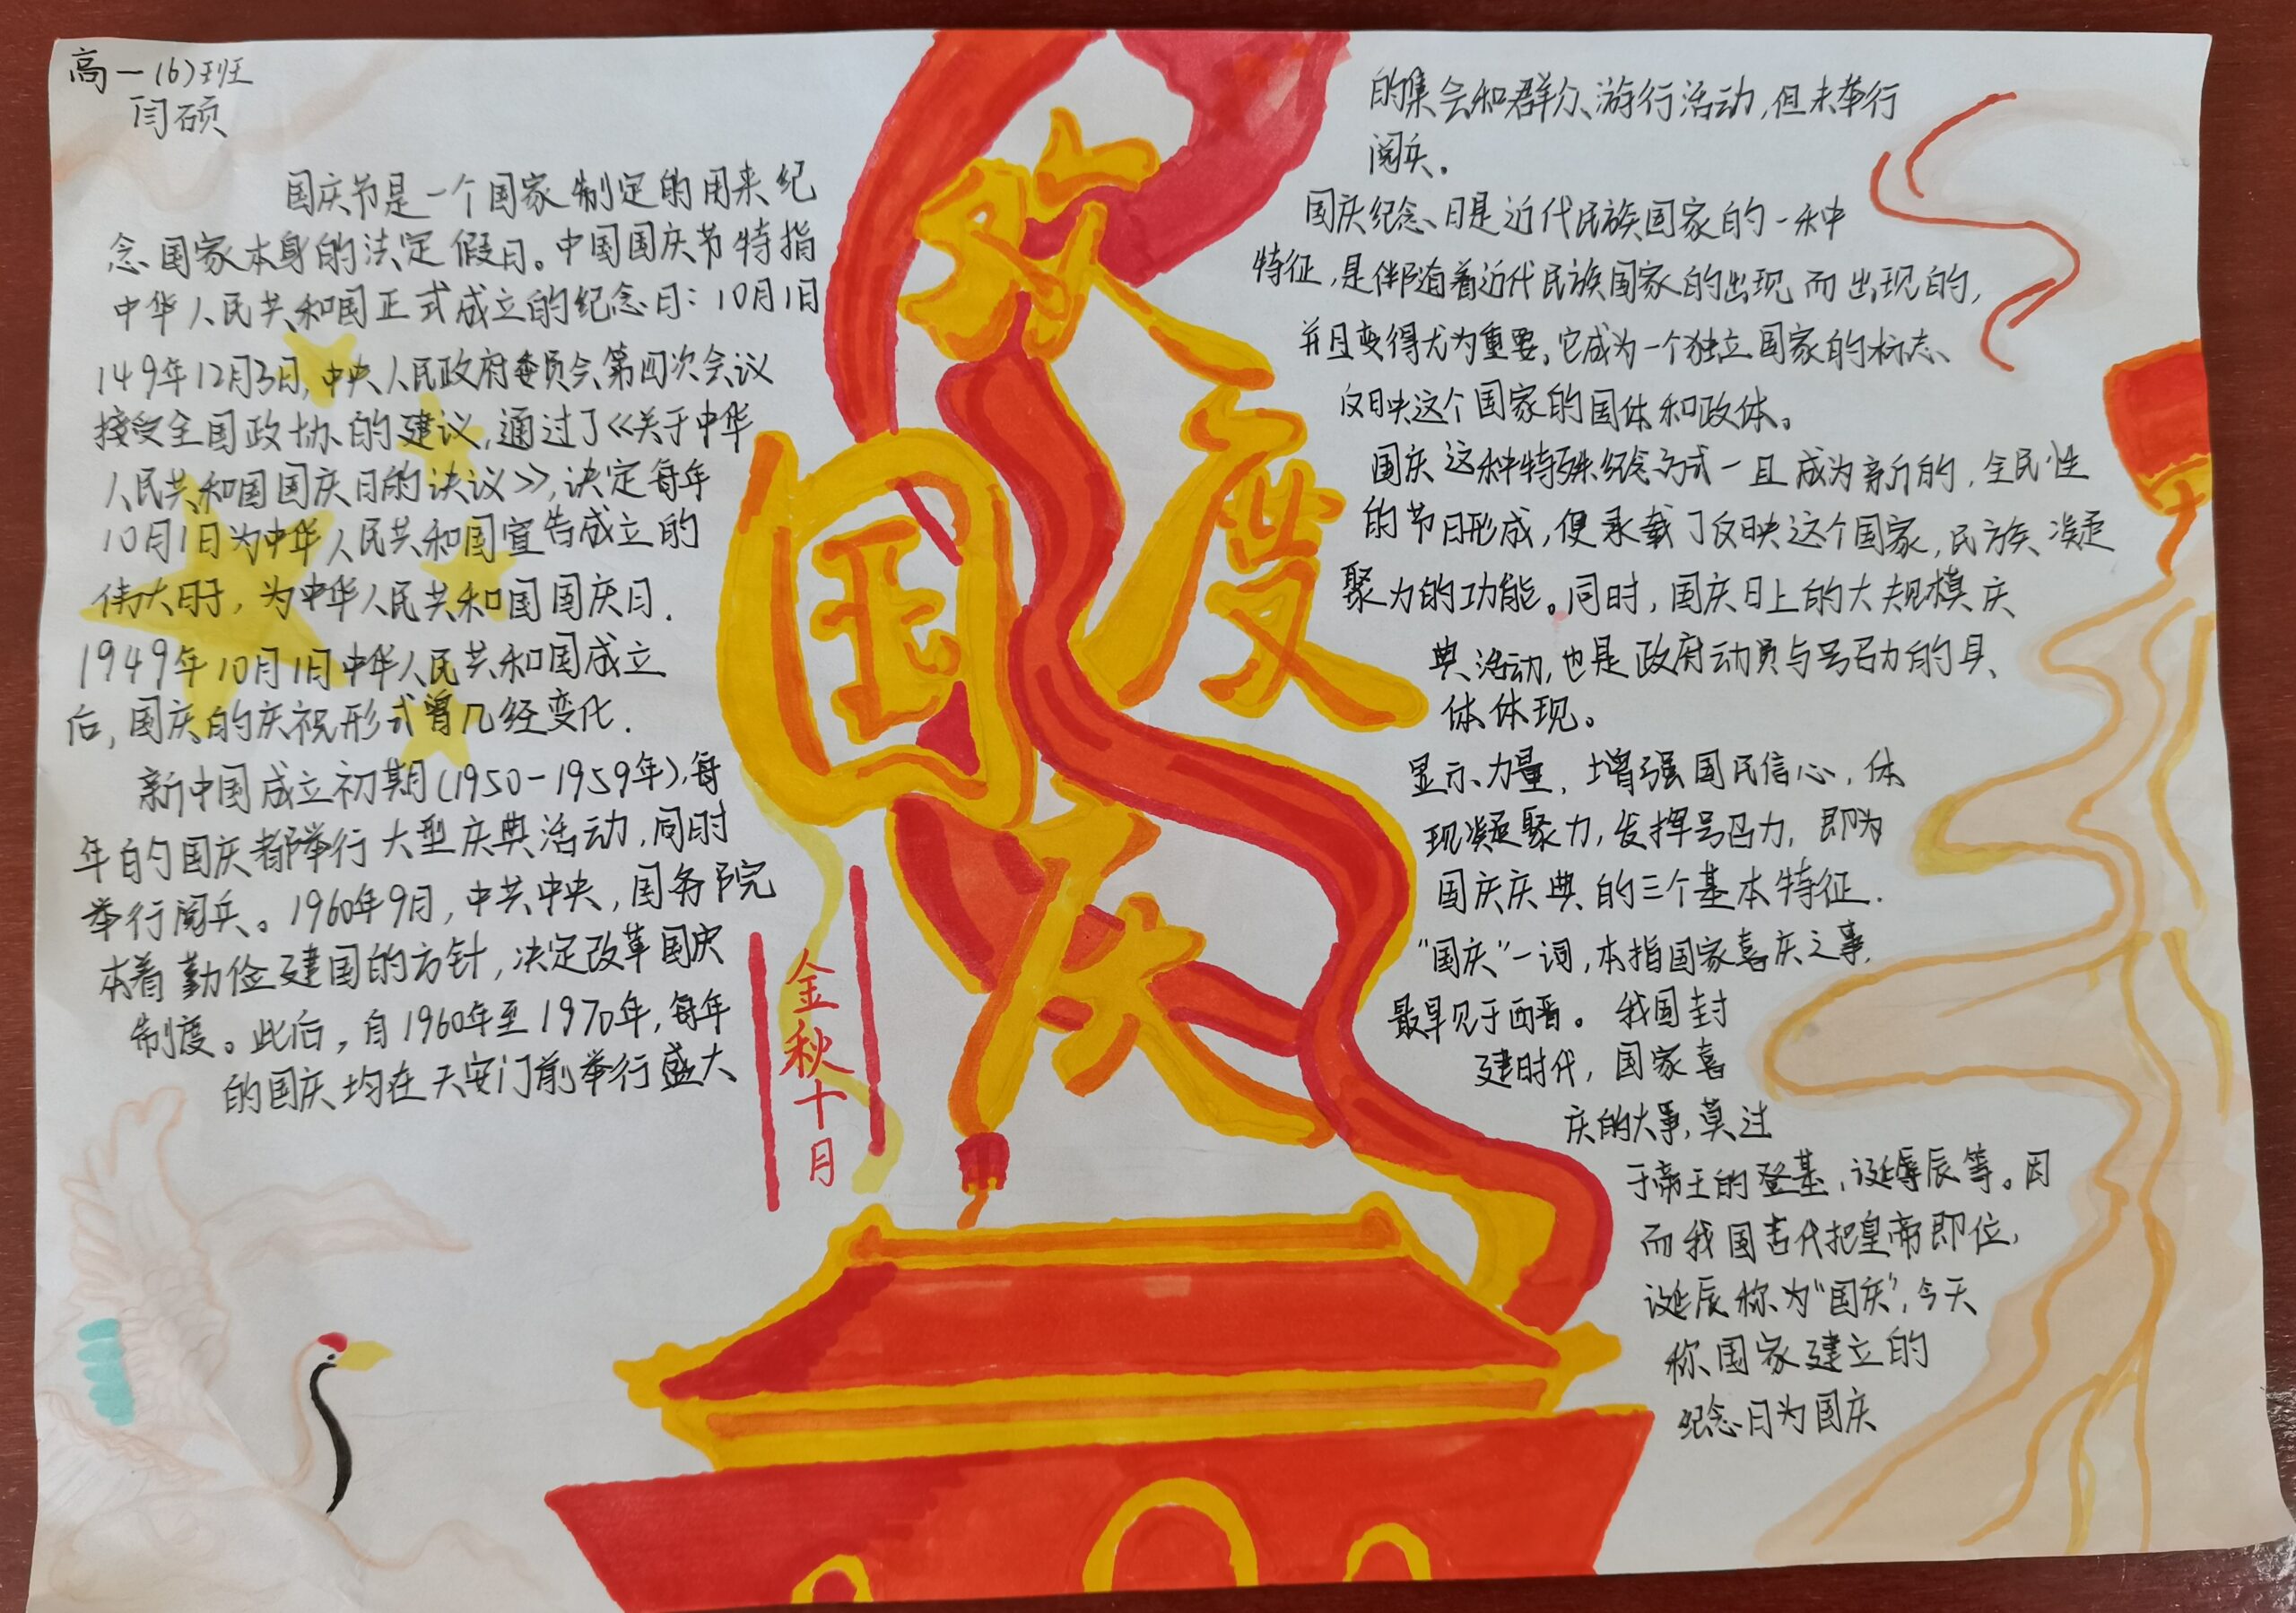 高一(6)班
闫硕
国庆节是一个国家制定的用来纪
念国家本身的法定假日。中国国庆节特指
中华人民共和国正式成立的纪念日:10月1日
149年12月3日,中央人民政府委员会第四次会议
接受全国政协的建议,通过了《关于中华
人民共和国国庆日的决议》,决定每年
10月1日为中华人民共和国宣告成立的
伟大日时,为中华人民共和国国庆日.
1949年10月1日中华人民共和国成立
后,国庆的庆祝形式曾几经变化.
新中国成立初期(1950-1959年),每
年的国庆都举行大型庆典活动,同时
举行阅兵。1960年9月,中共中央,国务院
本着勤俭建国的方针,决定改革国庆
制度。此后,自1960年至1970年,每年
的国庆均在天安门前举行盛大
欢度
国庆
金秋十月
的集会和群众游行活动,但未举行
阅兵.
国庆纪念日是近代民族国家的一种
特征,是伴随着近代民族国家的出现而出现的,
并且变得尤为重要,它成为一个独立国家的标志、
反映这个国家的国体和政体。
国庆这种特殊纪念方式一旦成为新的,全民性
的节日形成,便承载了反映这个国家,民族凝
聚力的功能。同时,国庆日上的大规模庆
典活动,也是政府动员与号召力的具
体体现。
显示力量,增强国民信心,体
现凝聚力,发挥号召力,即为
国庆庆典的三个基本特征.
“国庆”一词,本指国家喜庆之事,
最早见于西晋。我国封
建时代,国家喜
庆的大事,莫过
于帝王的登基,诞辱辰等。因
而我国古代把皇帝即位,
诞辰称为“国庆”,今天
称国家建立的
纪念日为国庆